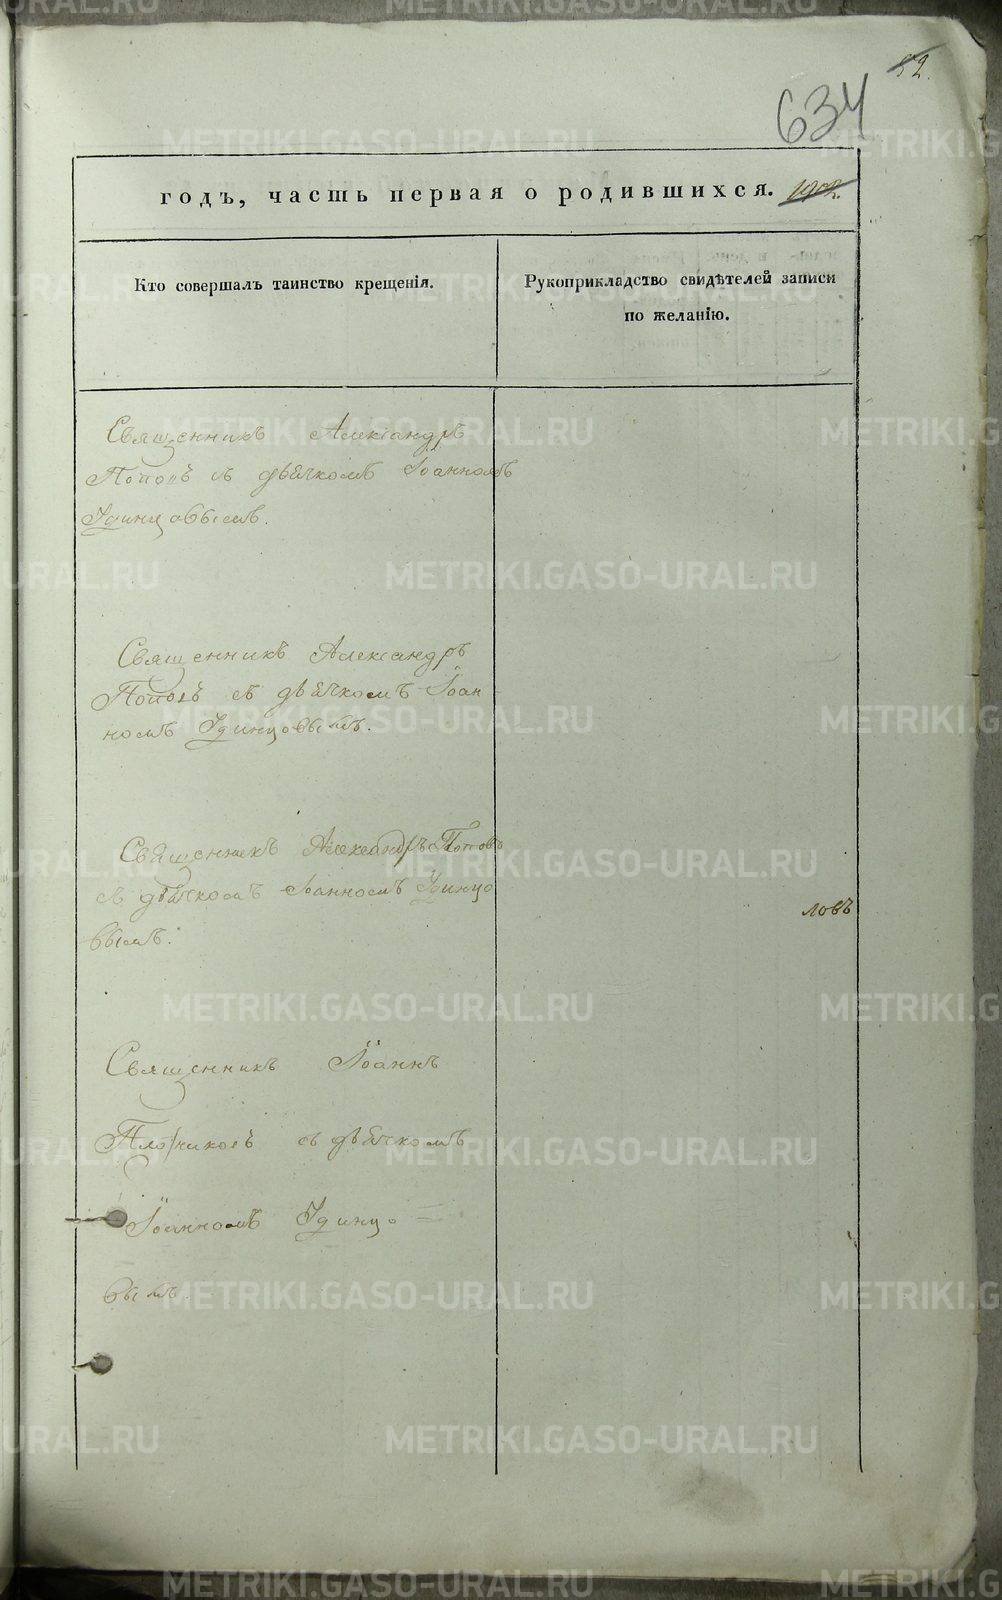 52.
634
годъ, часть первая о родившихся.
Кто совершалъ таинство крещенія.
Рукоприкладство свидѣтелей записи
по желанію.
Священникъ Александръ
Поповъ съ дьячкомъ Іоанномъ
Удинцовымъ.
Священникъ Александръ
Поповъ съ дьячкомъ Іоан
номъ Удинцовымъ.
Священникъ Александръ Поповъ
съ дьячкомъ Іоанномъ Удинцо
вымъ.
ловъ
Священникъ Іоаннъ
Плотниковъ съ дьячкомъ
Іоанномъ Удинцо=
вымъ.
METRIKI.GASO-URAL.RU